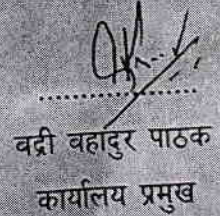 वद्री वहादुर पाठक
कार्यालय प्रमुख